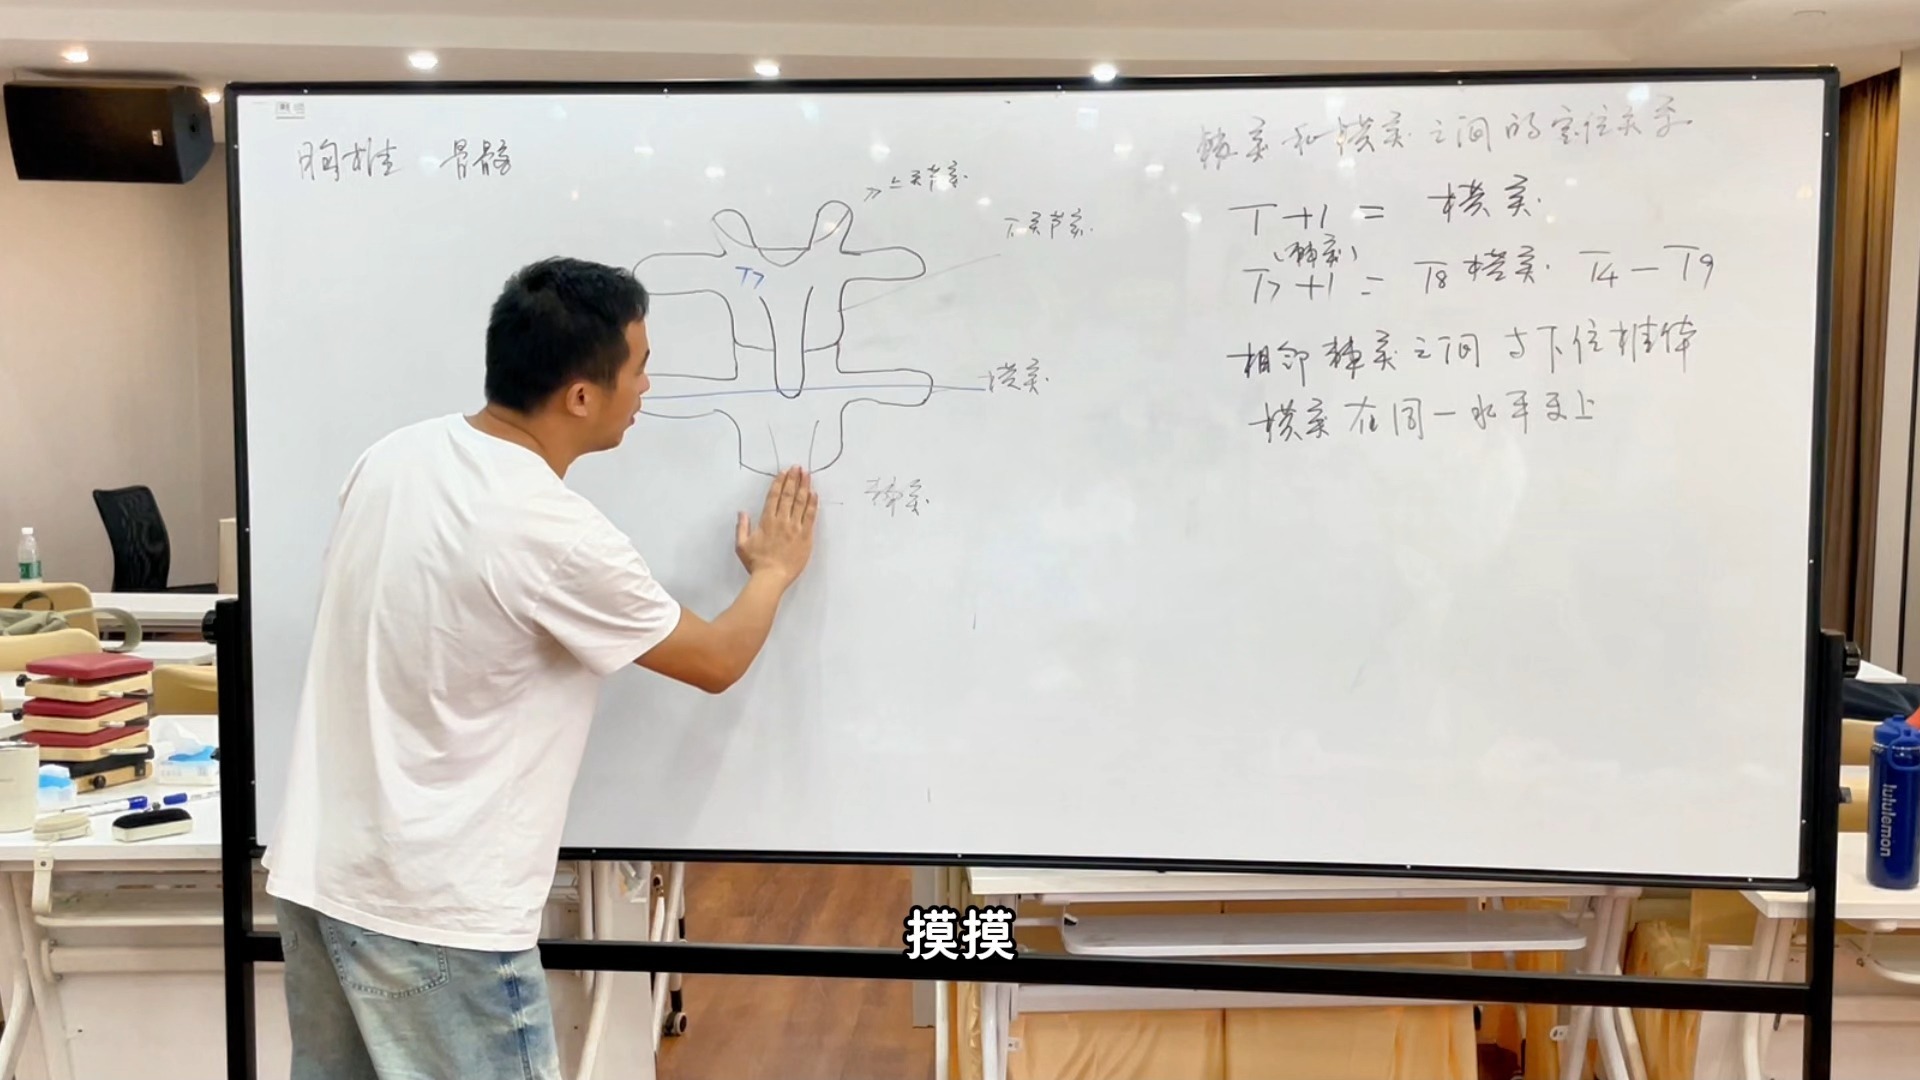 胸椎 骨骼
棘突和横突之间的定位关系
>上关节突.
下关节突.
T+1 = 横突.
(棘突)
T7
T7+1 = T8横突. T4-T9
相邻棘突之间与下位椎体
横突.
横突在同一水平面上
棘突.
lululemon
摸摸